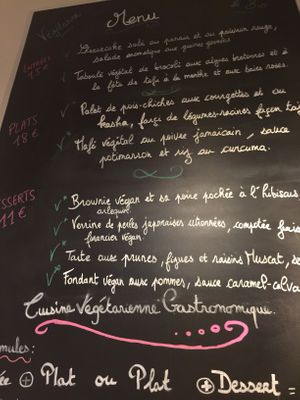 Végétarien
Menu
ENTRÉES
15 €
Cheesecake salé au panais et au poivron rouge,
salade aromatique aux graines grillées
Taboulé végétal de brocoli aux algues bretonnes et à
la féta de tofu à la menthe et aux baies roses.
PLATS
18 €
Palet de pois-chiches aux courgettes et au
kasha, farçi de légumes-racines façon taj
Mafé végétal au poivre jamaïcain, sauce
potimarron et riz au curcuma.
ESSERTS
11 €
Brownie végan et sa poire pochée à l'hibiscus
Verrine de perles japonaises citronnées, compotée
financier végan.
Tarte aux prunes, figues et raisins Muscat,
Fondant végan aux pommes, sauce caramel-calva
Cuisine Végétarienne Gastronomique.
mules:
ée + Plat ou Plat + Dessert =